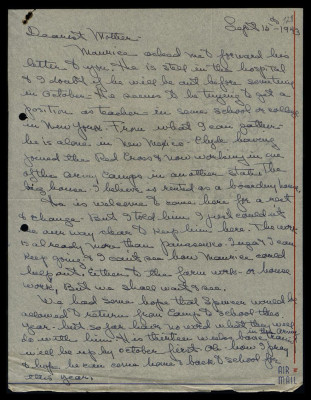 Sept 16 - 1943
Dearest Mother -
Maurice asked me to forward his
letter to you. He is still in the hospital
& I doubt if he will be out before sometime
in October - He seems to be trying to get a
position as teacher - in some school or college
in New York - From what I can gather
he is alone in New Mexico - Clyde having
joined the Red Cross & now working in one
of the Army Camps in another state. The
big house I believe is rented as a boarding house
is welcome to come here for a rest
& change - But I told him I
see our way clear to keep him here. The work
is already more than Inga & I can
keep going & I can't see how Maurice could
help out. Either to the farm work - or house
work. But we shall wait & see.
We had some hope that Spencer would be
allowed to return from Camp to School this
year - but so far have no word what they will
do with him. His thirteen weeks basic training
in the Army
will be up by October first. Oh - how I pray
& hope he can come home & back to school for
this year.
AIR
MAIL